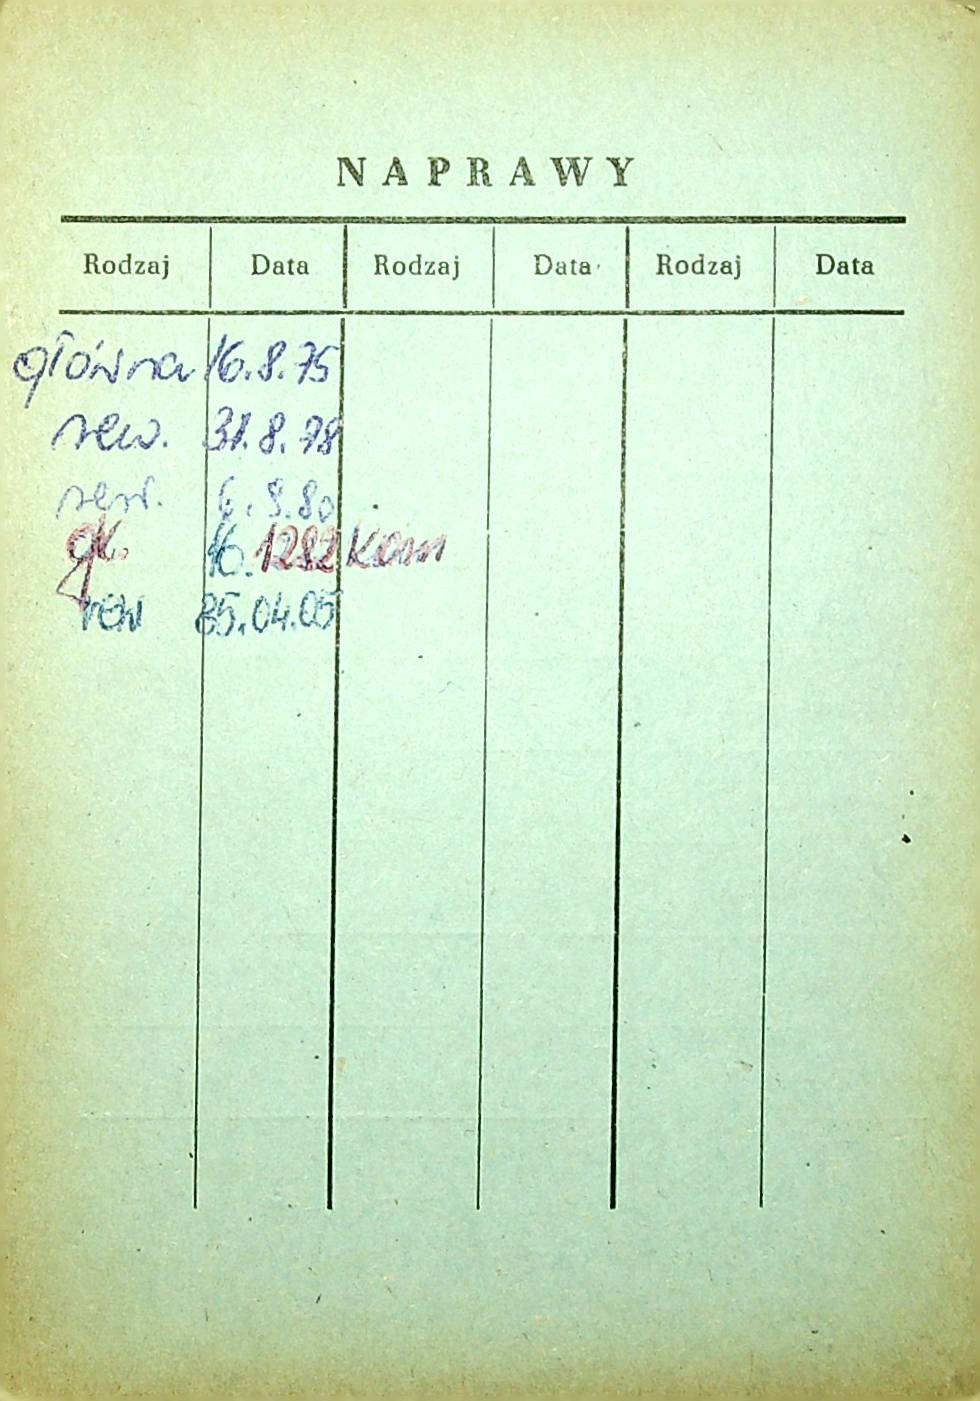 NAPRAWY
Rodzaj Data Rodzaj Data Rodzaj Data
główna 16.8.75
rew. 31.8.78
rew. 6.9.80
gł. 16.1282 Kom
rew 85.04.05